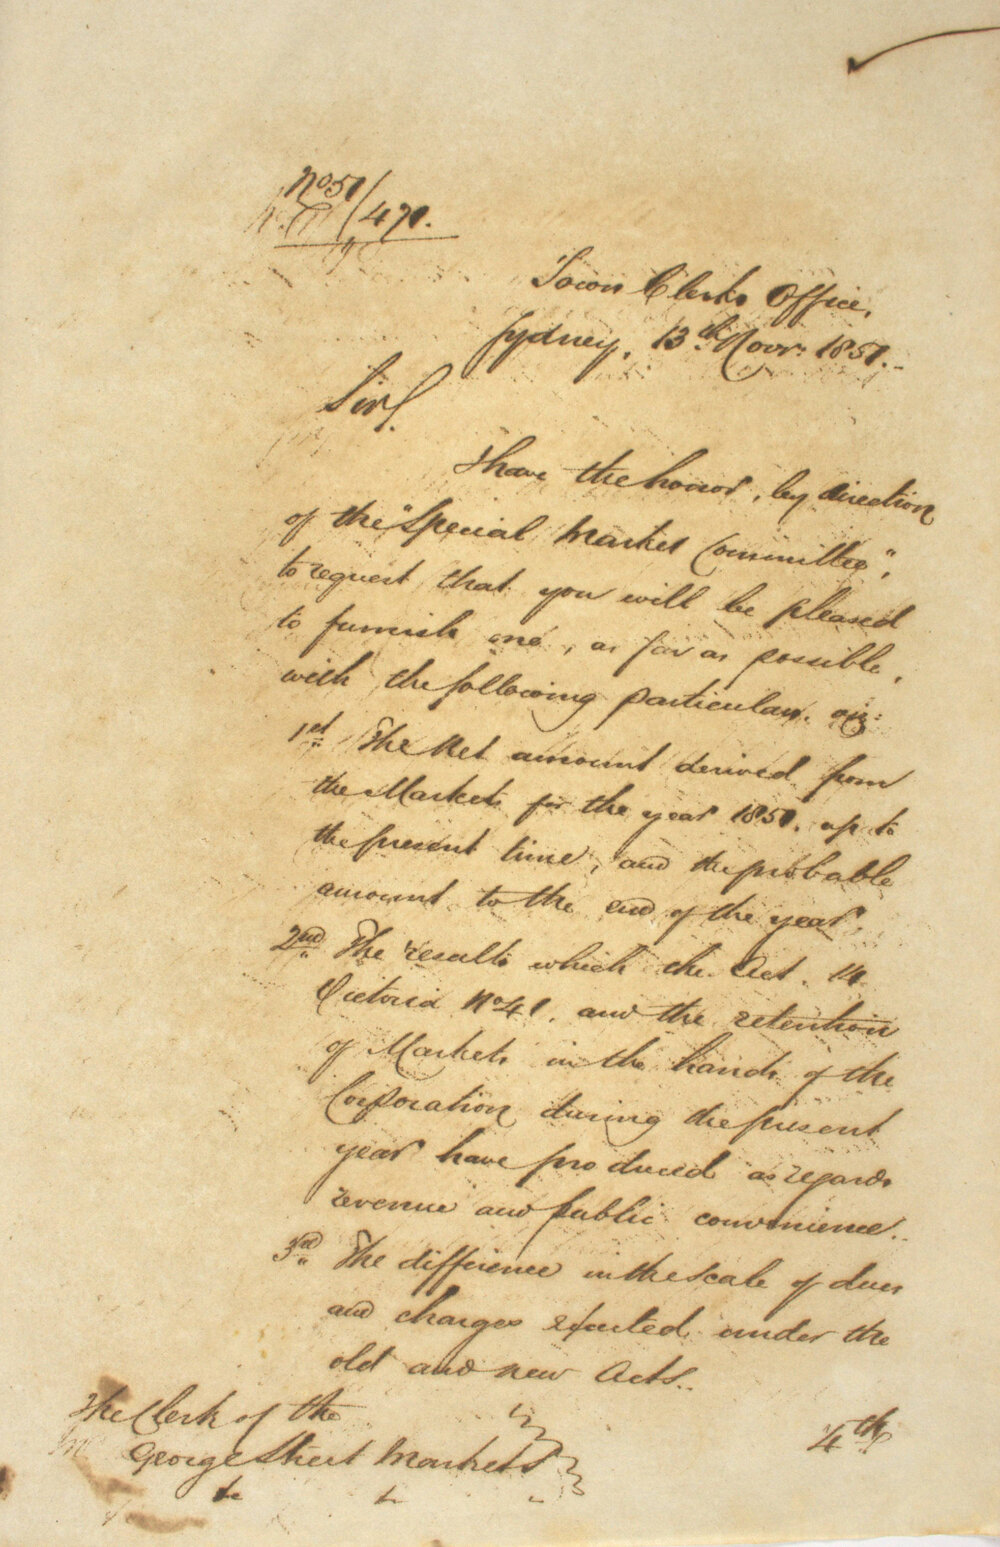 No 51/471.
Town Clerks Office,
Sydney, 13th Novr. 1851.
Sir,
I have the honor, by direction
of the "Special Market Committee",
to request that you will be pleased
to furnish me, as far as possible,
with the following particulars. viz:
1st The Net amount derived from
the Markets for the year 1851. up to
the present time, and the probable
amount to the end of the year.
2nd The results which the Act. 14
Victoria No 41. and the retention
of Markets in the hands of the
Corporation during the present
year have produced as regards
revenue and public convenience.
3rd The difference in the scale of dues
and charges exacted under the
old and new Acts.
The Clerk of the
George Street Markets
4th